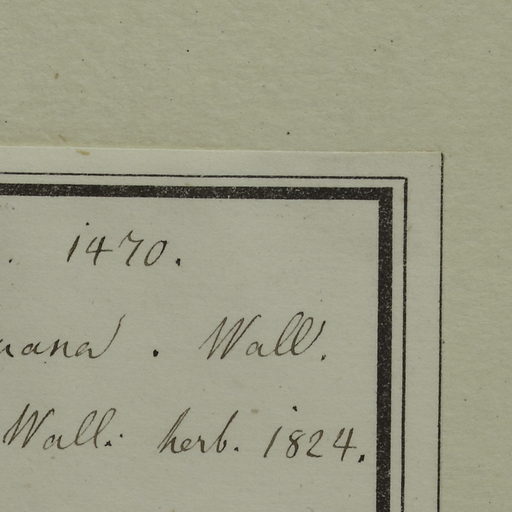 . 1470.
. Wall.
Wall. herb. 1824.